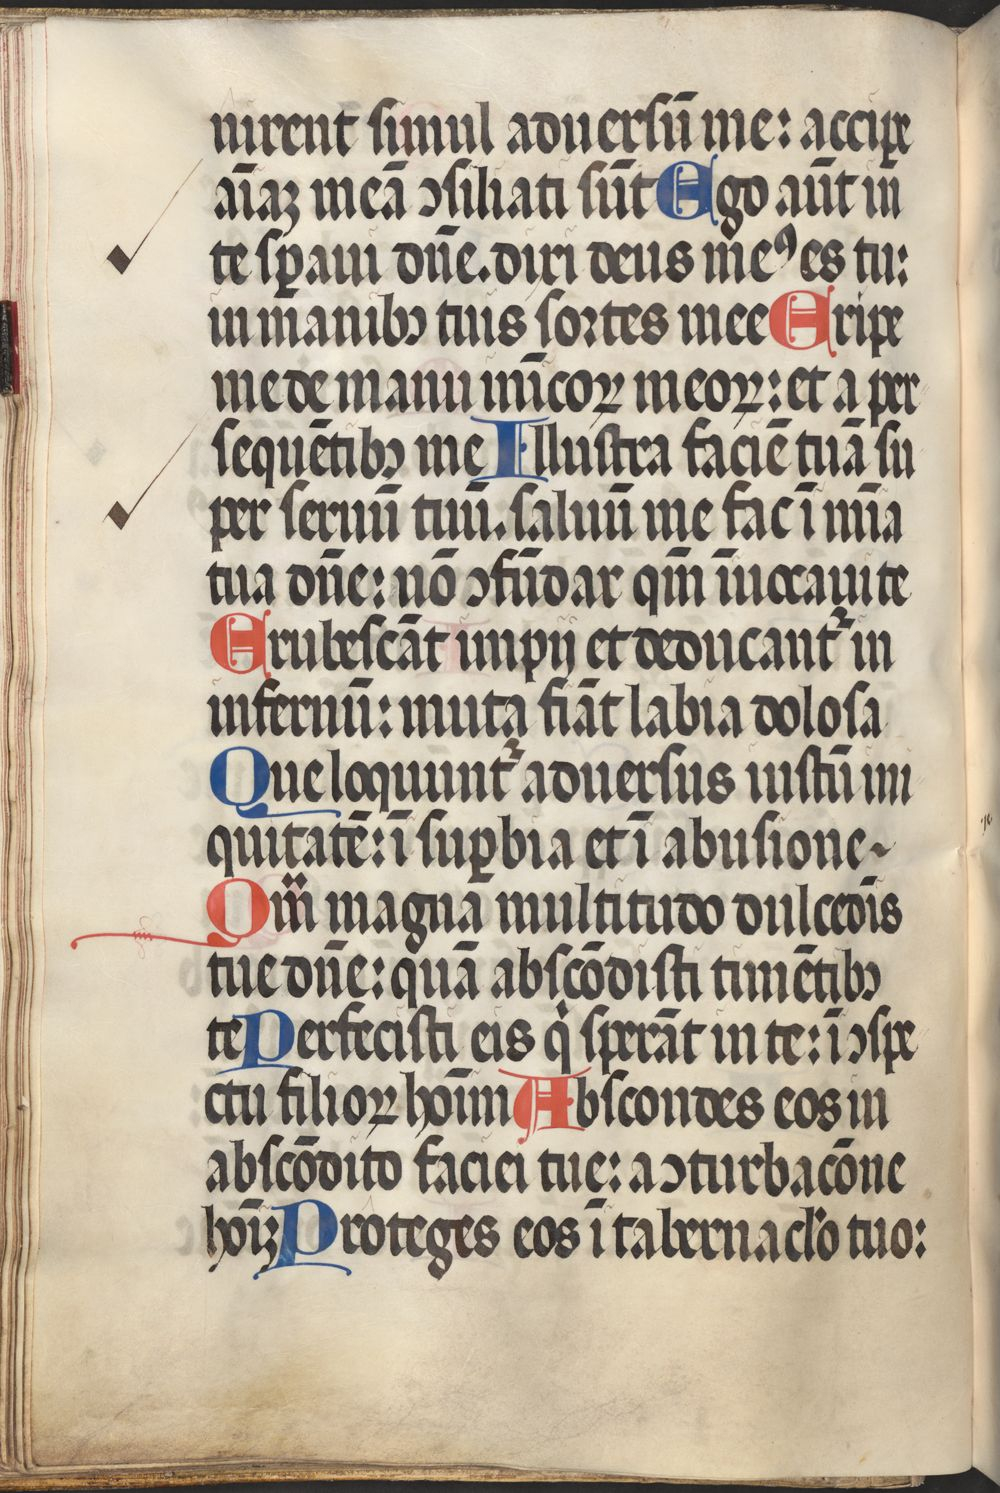 nirent simul aduersū me: accipe
aīaꝫ meā ↄsiliati sūt Ego aūt in
te sꝑaui dn̄e. dixi deus meꝰ es tu:
in manibꝫ tuis sortes mee Eripe
me de manu inīcoꝝ meoꝝ: et a per
sequētibꝫ me Illustra faciē tuā su
per seruū tuū. saluū me fac ī mīa
tua dn̄e: nō ↄfūdar qm̄ īuocaui te
Erubescāt impij et deducantᷣ in
infernū: muta fiāt labia dolosa
Que loquuntᷣ aduersus iustū ini
quitatē: ī suꝑbia et ī abusione~
Qm̄ magna multitudo dulcedīs
tue dn̄e: quā abscōdisti timētibꝫ
te Perfecisti eis qͥ sperāt in te: ī ↄspe
ctu filioꝝ hoīm Abscondes eos in
abscōdito faciei tue: a ↄturbacōne
hoīꝫ Proteges eos ī tabernaclo tuo: